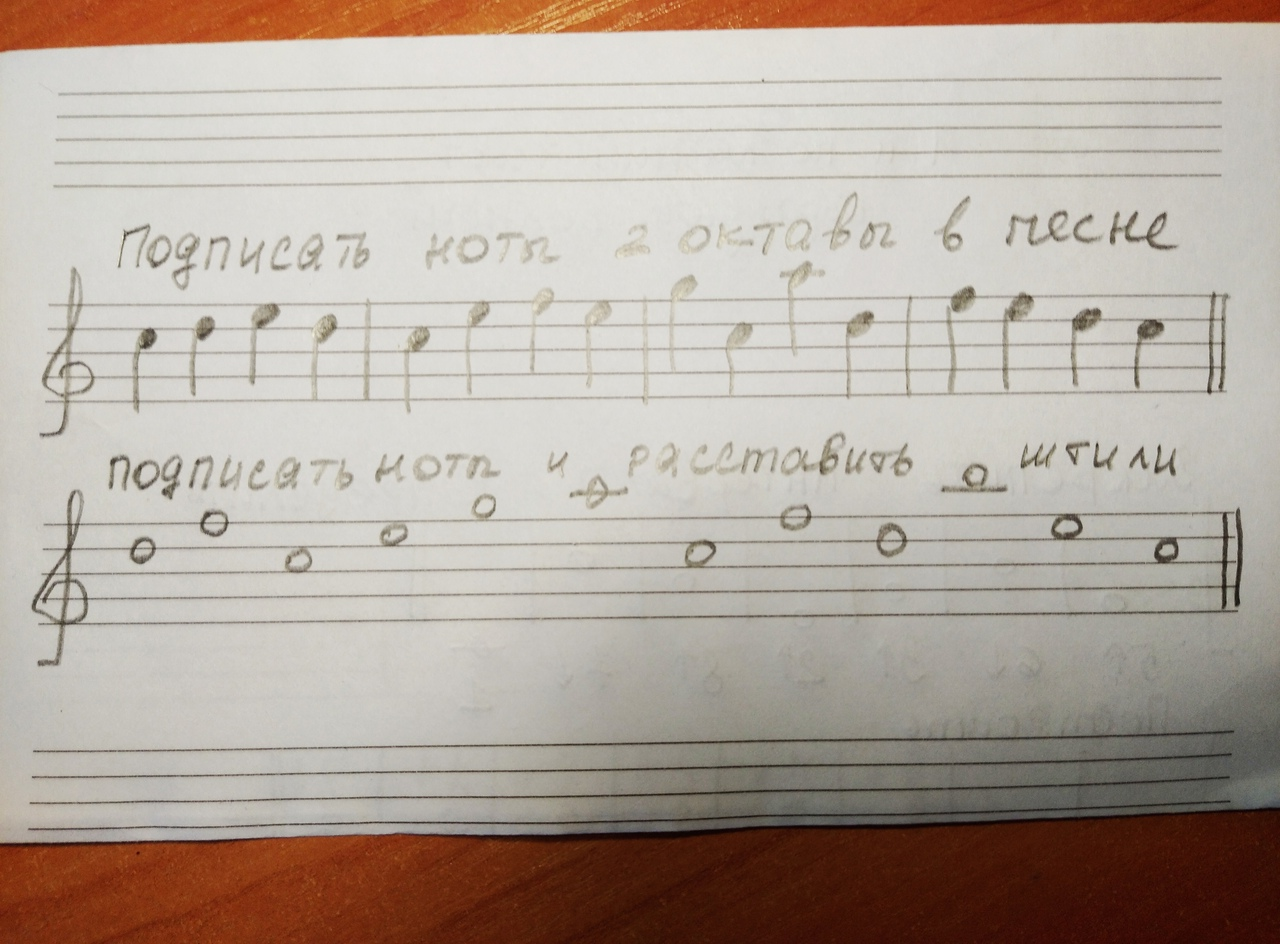 Подписать ноты 2 октавы в песне
подписать ноты и расставить штили